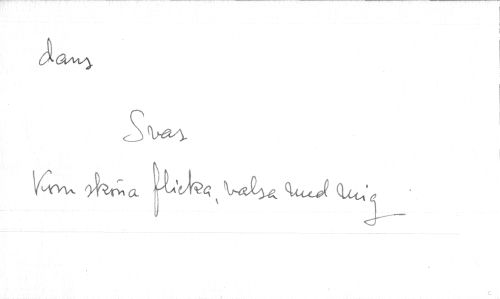 dans
Svas
Kom sköna flicka, valsa med mig